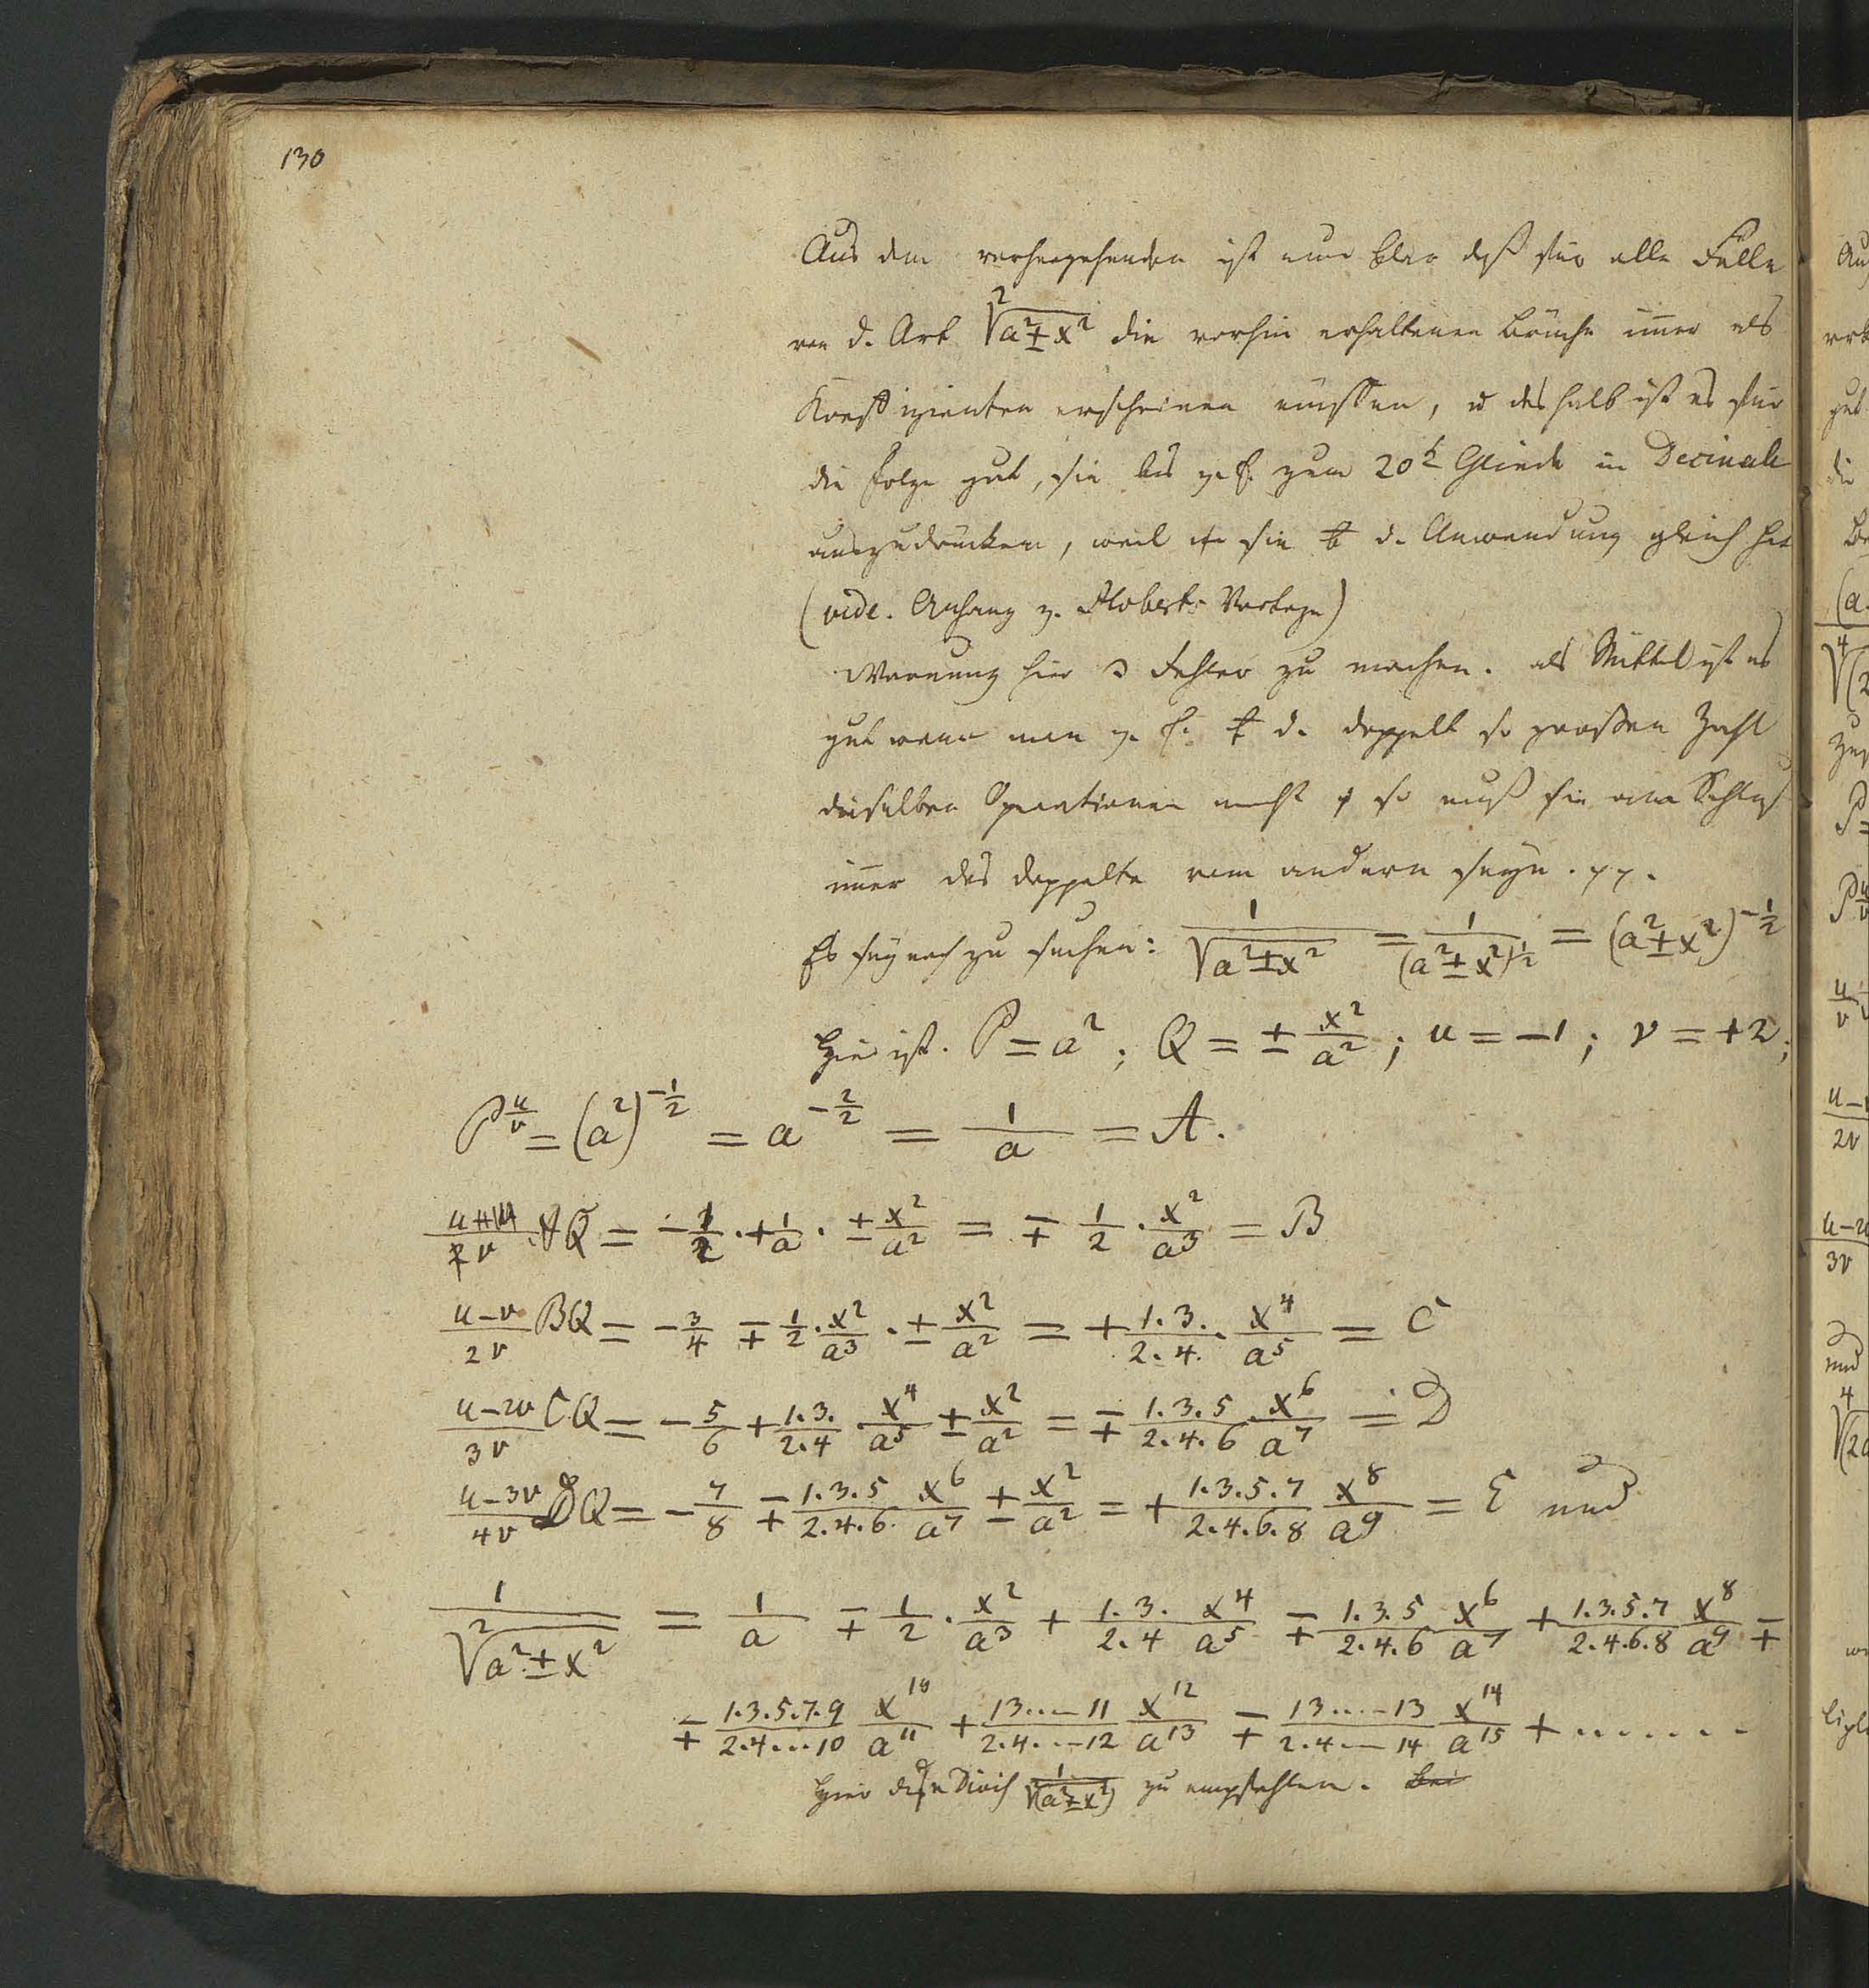 130
Aus dem vorhergehenden ist nun klar daß für alle Fälle
von d. Art ²√(a²±x²) die vorhin erhaltenen Brüche im̅er als
Koeffizienten erscheinen müssen, u deshalb ist es für
die Folge gut, sie bis z. E. zum 20t Gliede in Decimale
auszudrücken, weil sie d. Anwendung gleich
(vide. Anhang z. Hoberts )
Warnung hier Fehler zu machen. als Mittel ist es
gut wenn man z. E. d. doppelt so großen Zahl
dieselben Operationen macht so muß sie Schluß
im̅er das doppelte vom andern seyn.
Es sey noch zu suchen: 1/√(a²±x²) = 1/(a²±x²)^(1/2) = (a²±x²)^(-1/2)
Hier ist. P = a²; Q = ± x²/a²; u = -1; v = +2;
P^(u/v) = (a²)^(-1/2) = a^(-2/2) = 1/a = A.
u/v AQ = -1/2 . +1/a . ± x²/a² = ∓ 1/2 . x²/a³ = B
(u-v)/2v BQ = -3/4 ∓ 1/2 . x²/a³ . ± x²/a² = + 1.3./2.4. . x⁴/a⁵ = C
(u-2v)/3v CQ = -5/6 + 1.3./2.4 x⁴/a⁵ ± x²/a² = ∓ 1.3.5/2.4.6 x⁶/a⁷ = D
(u-3v)/4v DQ = -7/8 ∓ 1.3.5/2.4.6. x⁶/a⁷ ± x²/a² = + 1.3.5.7/2.4.6.8 x⁸/a⁹ = E und
1/²√(a²±x²) = 1/a ∓ 1/2 . x²/a³ + 1.3./2.4 x⁴/a⁵ ∓ 1.3.5/2.4.6 x⁶/a⁷ + 1.3.5.7/2.4.6.8 x⁸/a⁹ ∓
∓ 1.3.5.7.9/2.4...10 x¹⁰/a¹¹ + 13...–11/2.4.–12 x¹²/a¹³ ∓ 13...–13/2.4–14 x¹⁴/a¹⁵ + ......
Hier 1/√(a²±x²) zu empfehlen. Bei